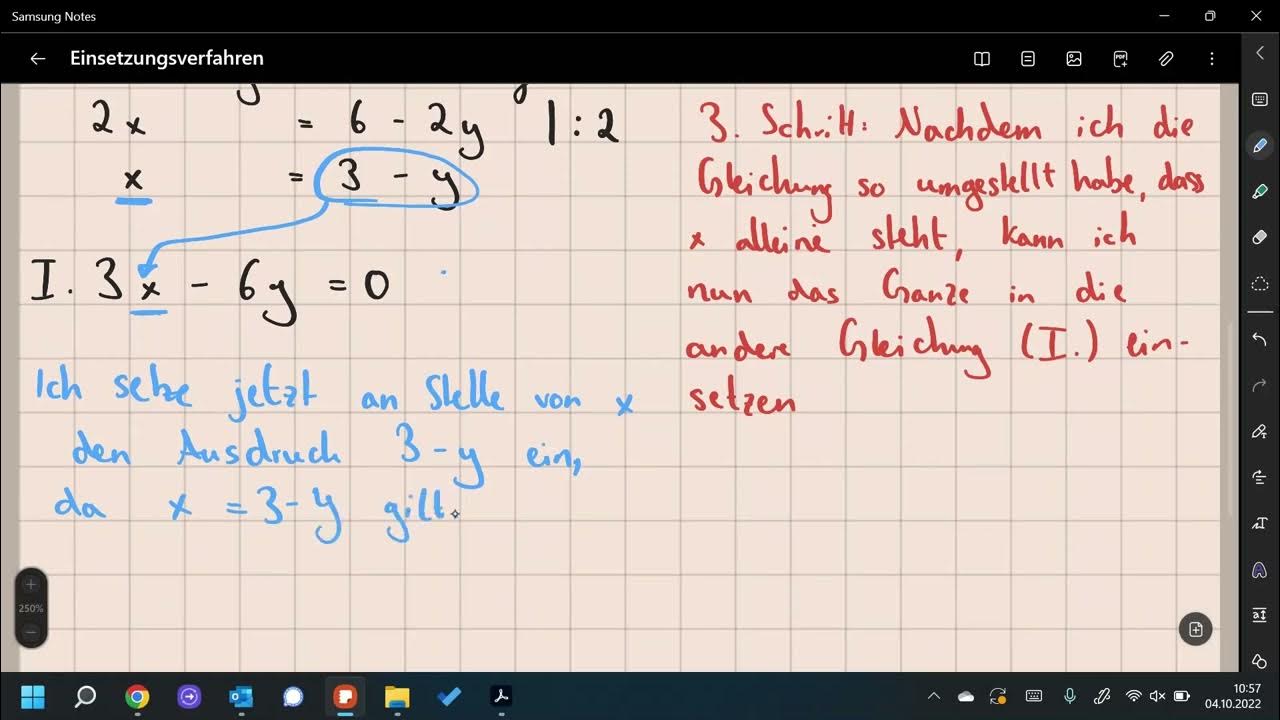 Samsung Notes
Einsetzungsverfahren
2x = 6 - 2y |:2
x = 3 - y
I. 3x - 6y = 0
Ich setze jetzt an Stelle von x
den Ausdruck 3-y ein,
da x = 3-y gilt.
3. Schritt: Nachdem ich die
Gleichung so umgestellt habe, dass
x alleine steht, kann ich
nun das Ganze in die
andere Gleichung (I.) ein-
setzen
250%
10:57
04.10.2022